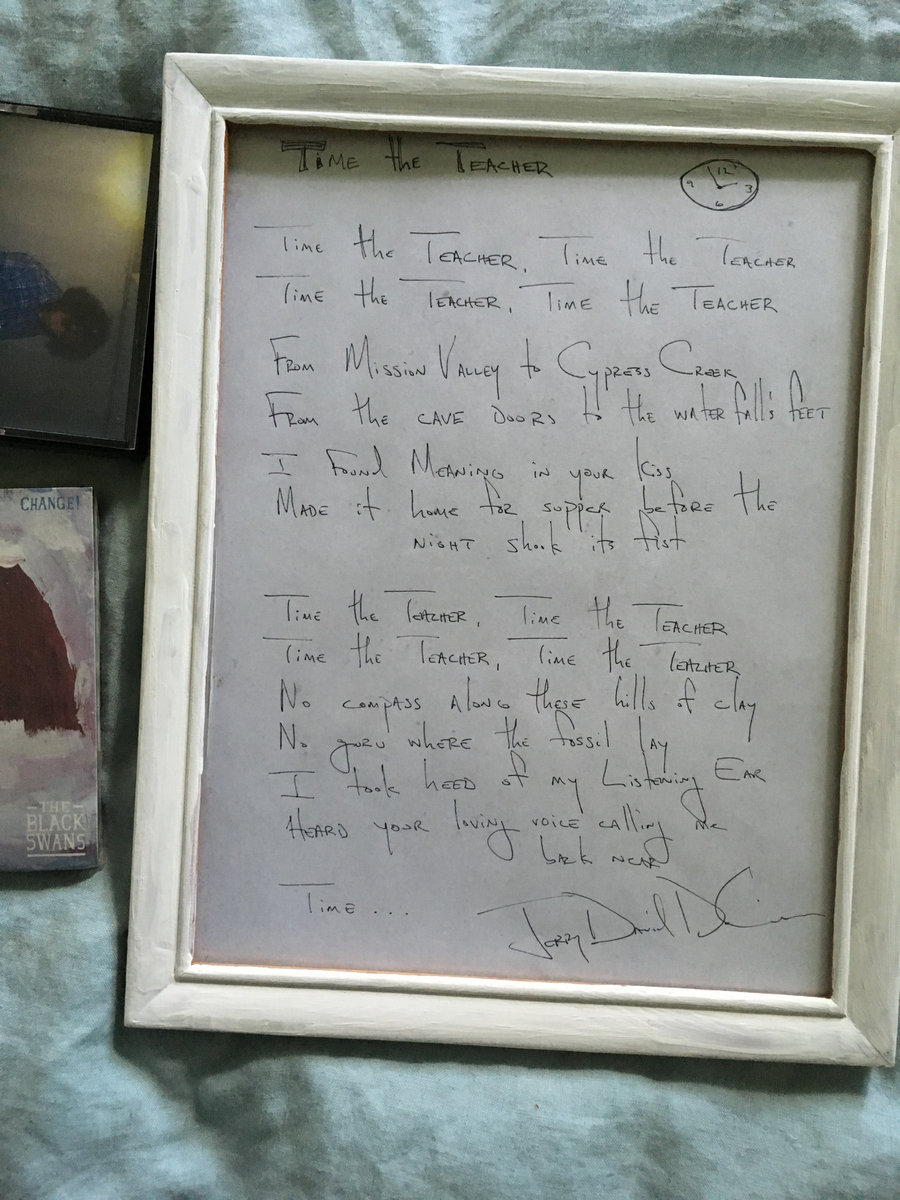 Time the Teacher
12
9 3
6
Time the Teacher, Time the Teacher
Time the Teacher, Time the Teacher
From Mission Valley to Cypress Creek
From the cave doors to the waterfall's feet
I found Meaning in your kiss
Made it home for supper before the
night shook its fist
Time the Teacher, Time the Teacher
Time the Teacher, Time the Teacher
No compass along these hills of clay
No guru where the fossil lay
I took heed of my Listening Ear
Heard your loving voice calling me
back near
Time...
Jerry David DeCicca
CHANGE!
THE
BLACK
SWANS